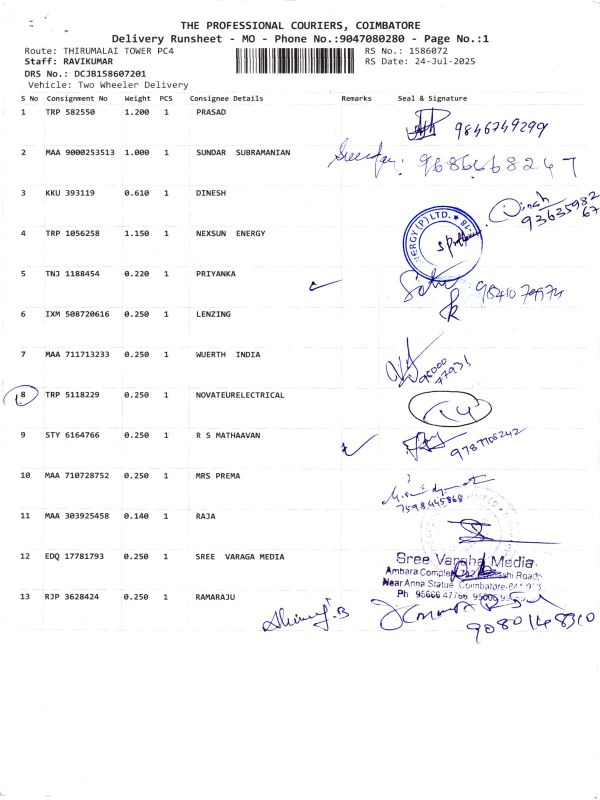 THE PROFESSIONAL COURIERS, COIMBATORE
Delivery Runsheet - MO - Phone No.:9047080280 - Page No.:1
Route: THIRUMALAI TOWER PC4 RS No.: 1586072
Staff: RAVIKUMAR RS Date: 24-Jul-2025
DRS No.: DCJB158607201
Vehicle: Two Wheeler Delivery
S No Consignment No Weight PCS Consignee Details Remarks Seal & Signature
1 TRP 582550 1.200 1 PRASAD 9846749299
2 MAA 9000253513 1.000 1 SUNDAR SUBRAMANIAN
3 KKU 393119 0.610 1 DINESH Dinesh
9363598267
4 TRP 1056258 1.150 1 NEXSUN ENERGY ERGY (P) LTD.
5 TNJ 1188454 0.220 1 PRIYANKA
6 IXM 508720616 0.250 1 LENZING
7 MAA 711713233 0.250 1 WUERTH INDIA
8 TRP 5118229 0.250 1 NOVATEURELECTRICAL
9 STY 6164766 0.250 1 R S MATHAAVAN 9787708242
10 MAA 710728752 0.250 1 MRS PREMA
7598445868
11 MAA 303925458 0.140 1 RAJA
12 EDQ 17781793 0.250 1 SREE VARAGA MEDIA Sree Varaha Media
Ambara Complex
Near Anna Statue, Coimbatore
Ph 95666 47766
13 RJP 3628424 0.250 1 RAMARAJU
9080148310